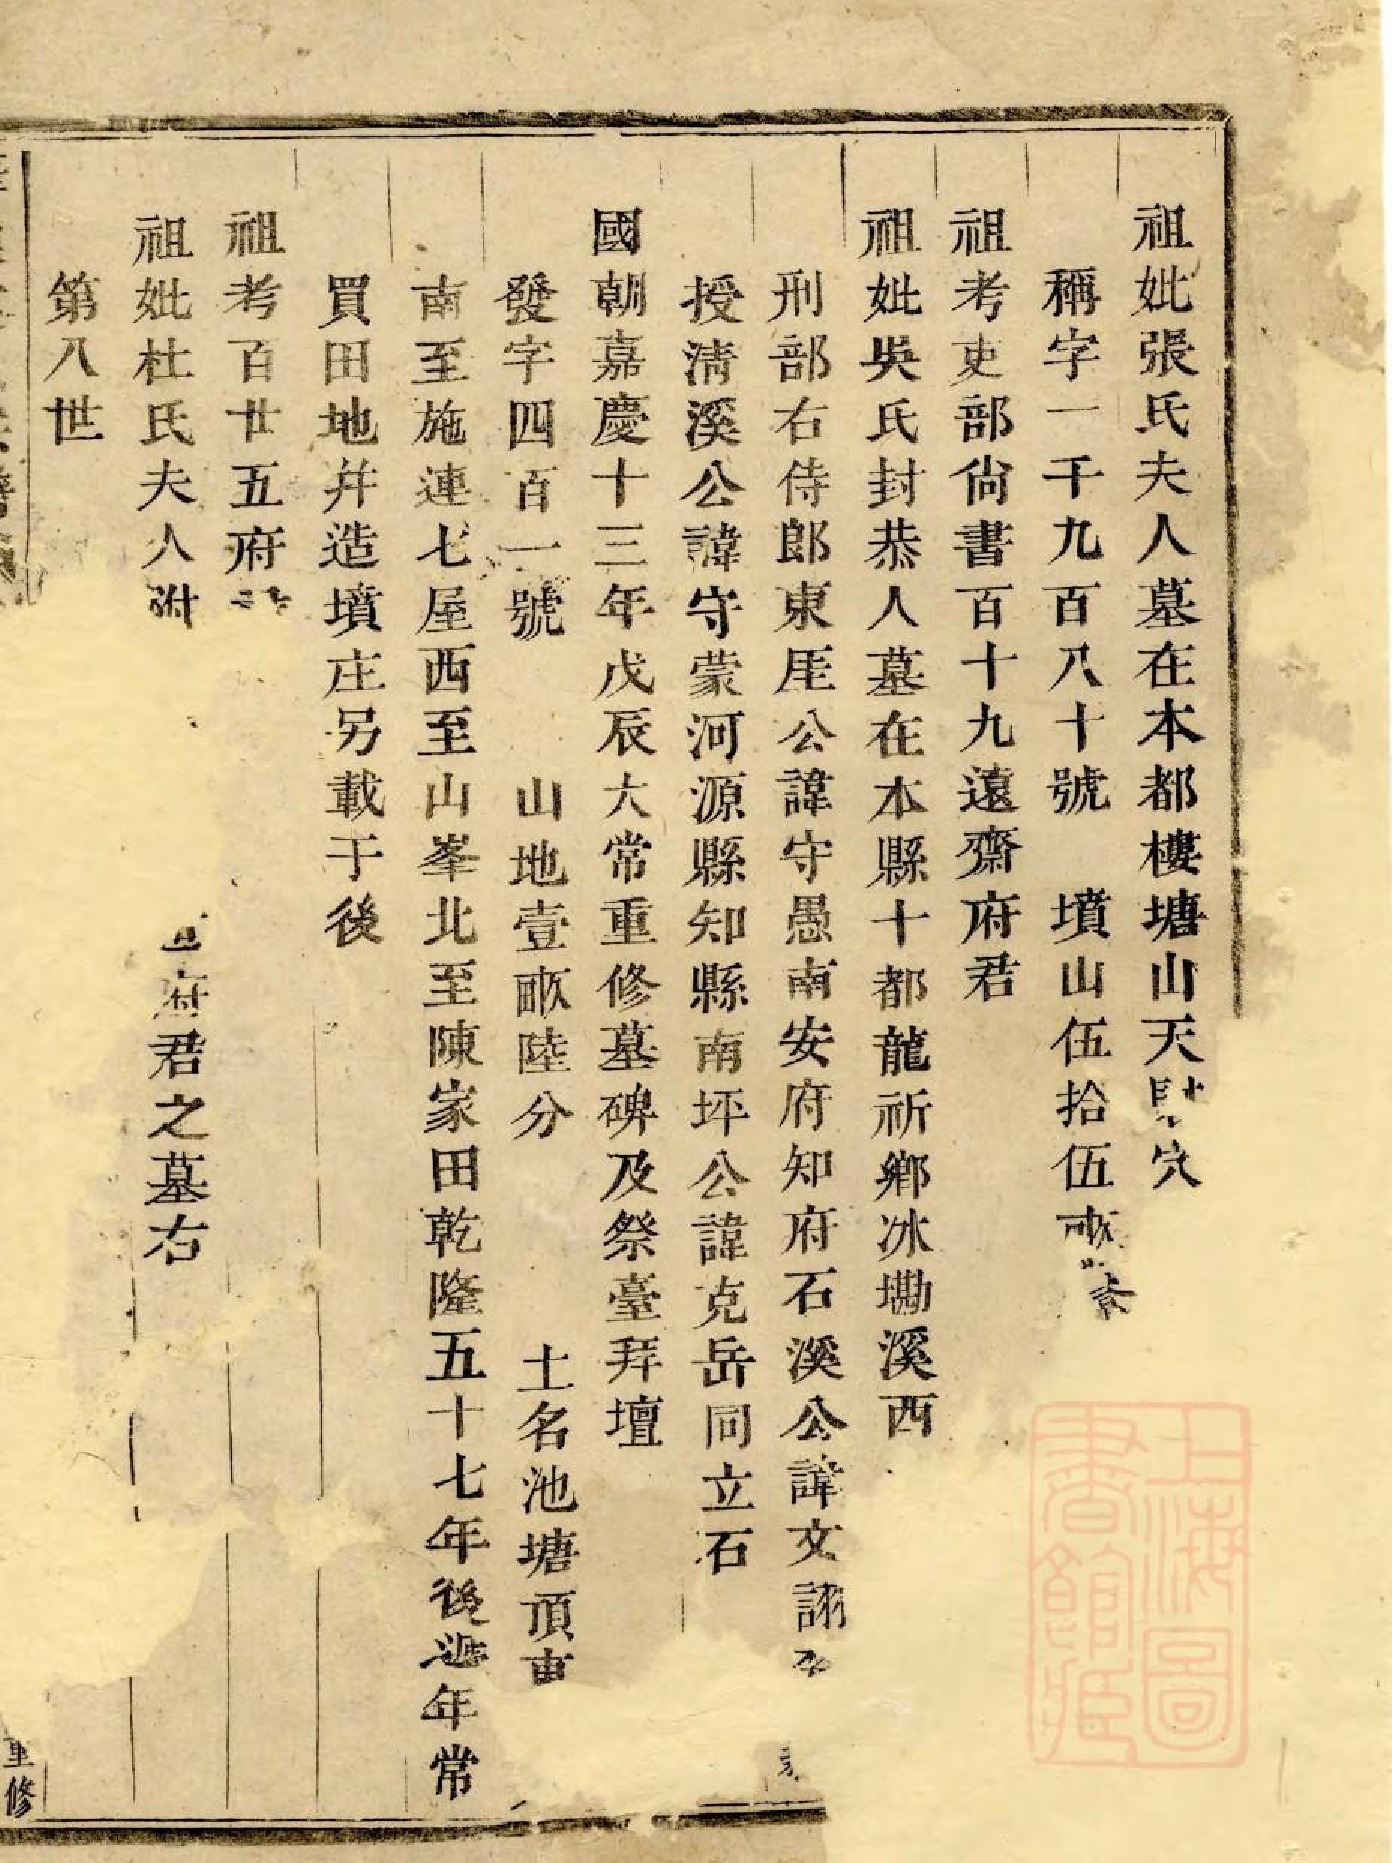 祖妣張氏夫人墓在本都樓塘山天 穴
稱字一千九百八十號 墳山伍拾伍畝
祖考吏部尙書百十九遠齋府君
祖妣吳氏封恭人墓在本縣十都龍祈鄉冰墈溪西
刑部右侍郎東厓公諱守愚南安府知府石溪公諱文詡
授淸溪公諱守蒙河源縣知縣南坪公諱克岳同立石
國朝嘉慶十三年戊辰大常重修墓碑及祭臺拜壇
發字四百一號 山地壹畝陸分 土名池塘頂東
南至施連七屋西至山峯北至陳家田乾隆五十七年後遞年常
買田地幷造墳庄另載于後
祖考百廿五府
祖妣杜氏夫人附 府君之墓右
第八世
重修
上海圖書館藏